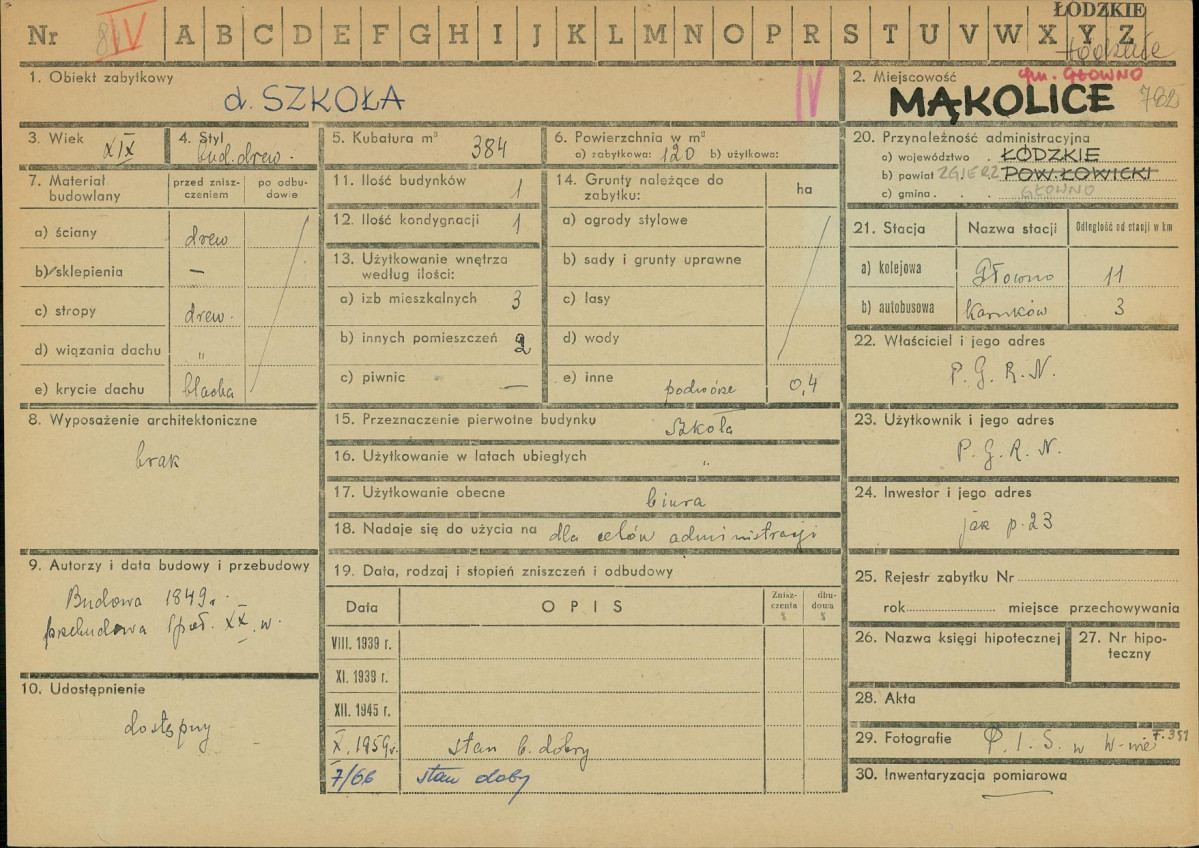 ŁÓDZKIE
Nr IV A B C D E F G H I J K L M N O P R S T U V W X Y Z
1. Obiekt zabytkowy
d. SZKOŁA IV
2. Miejscowość gm. GŁOWNO
MĄKOLICE 782
3. Wiek
XIX
4. Styl
bud. drew.
5. Kubatura m³ 384
6. Powierzchnia w m²
a) zabytkowa: 120 b) użytkowa:
7. Materiał budowlany
przed zniszczeniem
po odbudowie
a) ściany drew
b) sklepienia —
c) stropy drew.
d) wiązania dachu "
e) krycie dachu blacha
8. Wyposażenie architektoniczne
brak
9. Autorzy i data budowy i przebudowy
Budowa 1849 r.
przebudowa I poł. XX w.
10. Udostępnienie
dostępny
11. Ilość budynków 1
12. Ilość kondygnacji 1
13. Użytkowanie wnętrza
według ilości:
a) izb mieszkalnych 3
b) innych pomieszczeń 2
c) piwnic —
14. Grunty należące do
zabytku: ha
a) ogrody stylowe
b) sady i grunty uprawne
c) lasy
d) wody
e) inne podwórze 0,4
15. Przeznaczenie pierwotne budynku szkoła
16. Użytkowanie w latach ubiegłych "
17. Użytkowanie obecne biura
18. Nadaje się do użycia na dla celów administracji
19. Data, rodzaj i stopień zniszczeń i odbudowy
Data OPIS Zniszczenia % dbudowa %
VIII. 1939 r.
XI. 1939 r.
XII. 1945 r.
X. 1959 r. stan b. dobry
7/66 stan doby
20. Przynależność administracyjna
a) województwo . ŁÓDZKIE
b) powiat ZGIERZ POW. ŁOWICKI
c) gmina . . . GŁOWNO
21. Stacja Nazwa stacji Odległość od stacji w km
a) kolejowa Głowno 11
b) autobusowa Karnków 3
22. Właściciel i jego adres
P. G. R. N.
23. Użytkownik i jego adres
P. G. R. N.
24. Inwestor i jego adres
jak p. 23
25. Rejestr zabytku Nr
rok miejsce przechowywania
26. Nazwa księgi hipotecznej
27. Nr hipoteczny
28. Akta
29. Fotografie P. I. S. w W-wie F. 351
30. Inwentaryzacja pomiarowa
—